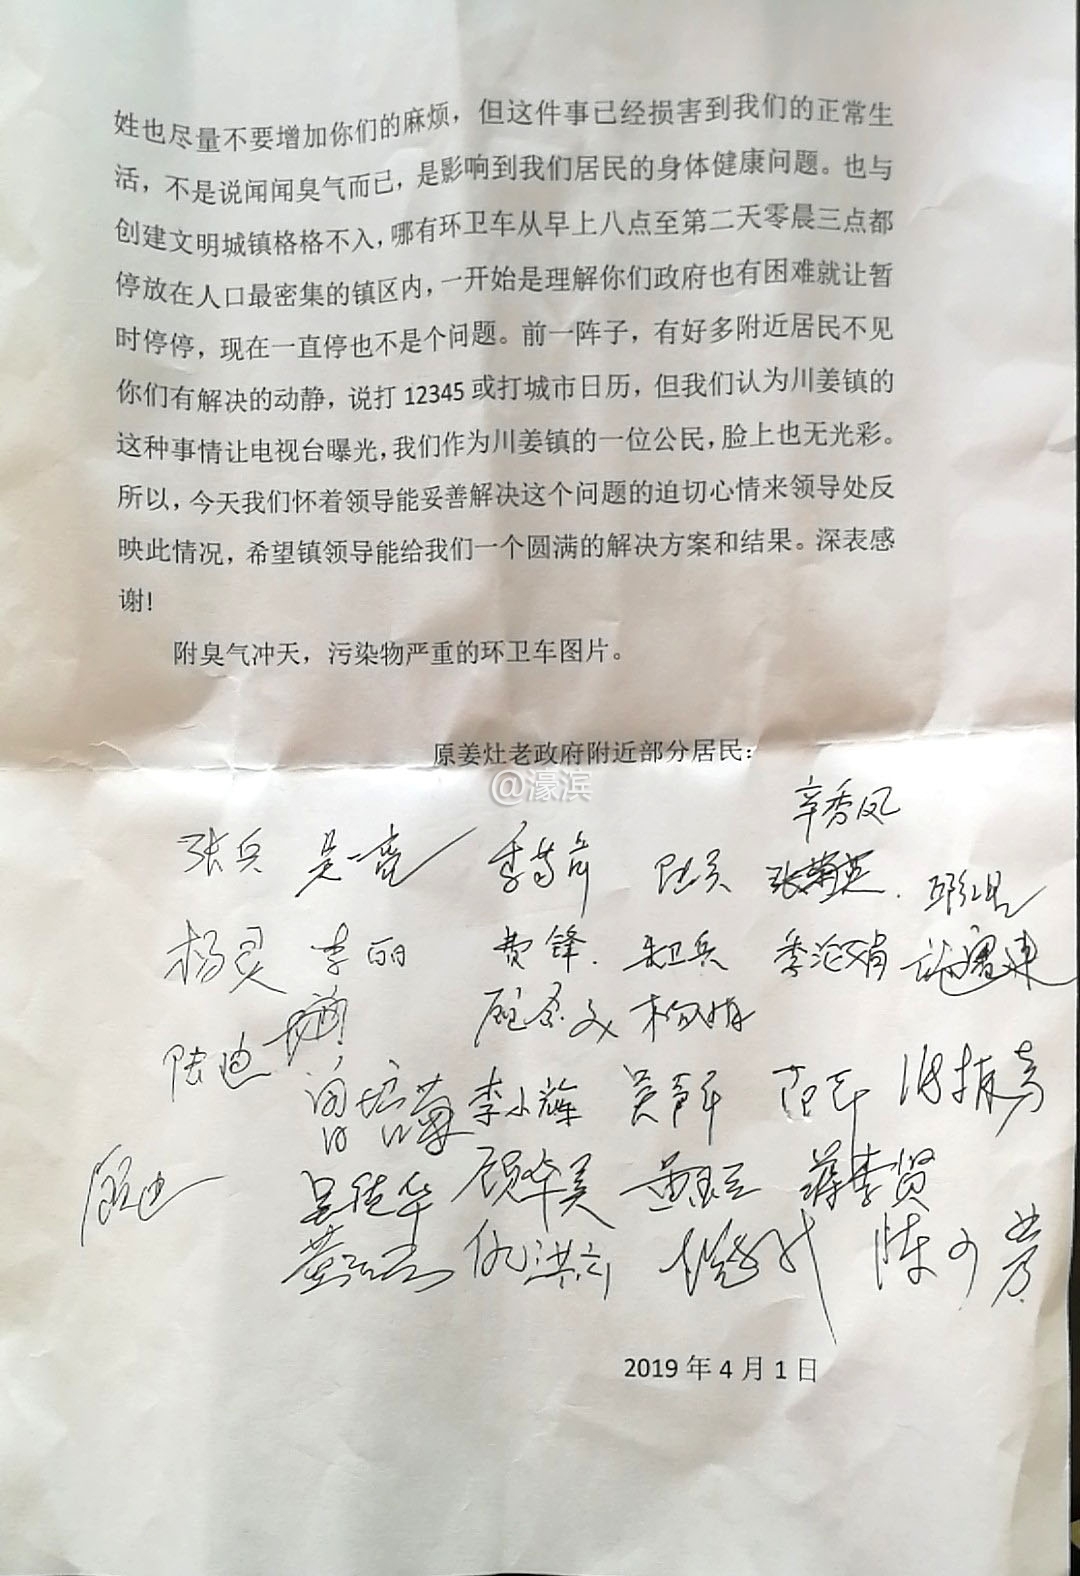 姓也尽量不要增加你们的麻烦，但这件事已经损害到我们的正常生
活，不是说闻闻臭气而已，是影响到我们居民的身体健康问题。也与
创建文明城镇格格不入，哪有环卫车从早上八点至第二天零晨三点都
停放在人口最密集的镇区内，一开始是理解你们政府也有困难就让暂
时停停，现在一直停也不是个问题。前一阵子，有好多附近居民不见
你们有解决的动静，说打 12345 或打城市日历，但我们认为川姜镇的
这种事情让电视台曝光，我们作为川姜镇的一位公民，脸上也无光彩。
所以，今天我们怀着领导能妥善解决这个问题的迫切心情来领导处反
映此情况，希望镇领导能给我们一个圆满的解决方案和结果。深表感
谢！
附臭气冲天，污染物严重的环卫车图片。
原姜灶老政府附近部分居民：
@濠滨
辛秀凤
张兵 吴一亮 张菊英
杨灵 李丽 费锋 朱卫兵
陆迪
李小辉
顾迪 吴德华 顾华美
仇洪云
2019 年 4 月 1 日